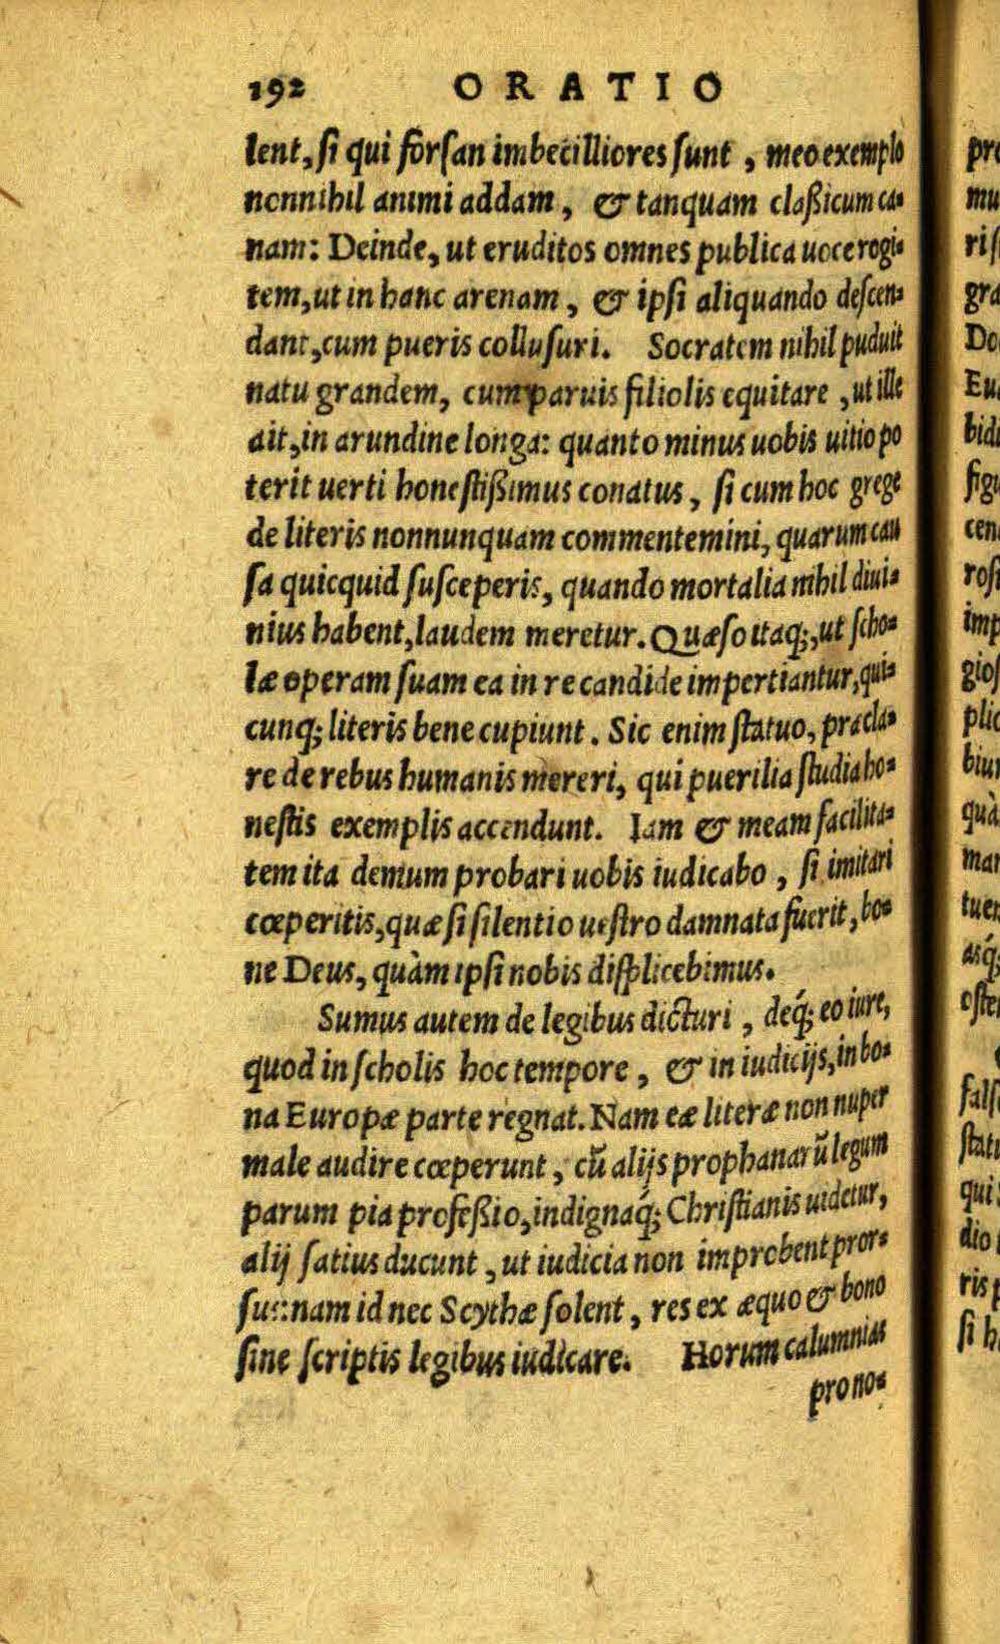 192 ORATIO
lent, ſi qui forſan imbecilliores ſunt, meo exemplo
nonnihil animi addam, & tanquam claßicum ca-
nam: Deinde, ut eruditos omnes publica uoce rogi-
tem, ut in hanc arenam, & ipſi aliquando deſcen-
dant, cum pueris colluſuri. Socratem nihil puduit
natu grandem, cum paruis filiolis equitare, ut ille
ait, in arundine longa: quanto minus uobis uitio po
terit uerti honeſtißimus conatus, ſi cum hoc grege
de literis nonnunquam commentemini, quarum cau
ſa quicquid ſuſceperis, quando mortalia nihil diui-
nius habent, laudem meretur. Quæſo itaq;, ut ſcho-
læ operam ſuam ea in re candide impertiantur, qui-
cunq; literis bene cupiunt. Sic enim ſtatuo, præcla-
re de rebus humanis mereri, qui puerilia ſtudia ho-
neſtis exemplis accendunt. Iam & meam facilita-
tem ita demum probari uobis iudicabo, ſi imitari
cœperitis, quæ ſi ſilentio ueſtro damnata fuerit, bo-
ne Deus, quàm ipſi nobis diſplicebimus.
Sumus autem de legibus dicturi, deq́; eo iure,
quod in ſcholis hoc tempore, & in iudicijs, in bo-
na Europæ parte regnat. Nam eæ literæ non nuper
male audire cœperunt, cũ alijs prophanarũ legum
parum pia profeßio, indignaq́; Chriſtianis uidetur,
alij ſatius ducunt, ut iudicia non improbent pror-
ſus: nam id nec Scythæ ſolent, res ex æquo & bono
ſine ſcriptis legibus iudicare. Horum calumnias
pro no-
pre
mu
riſ
gra
Do
Eu
bid
figu
cen
roſ
imp
gioſ
plic
biu
quà
mar
tuer
asq́;
oſte
falſ
ſtat
qui
dio
ris
ſi h